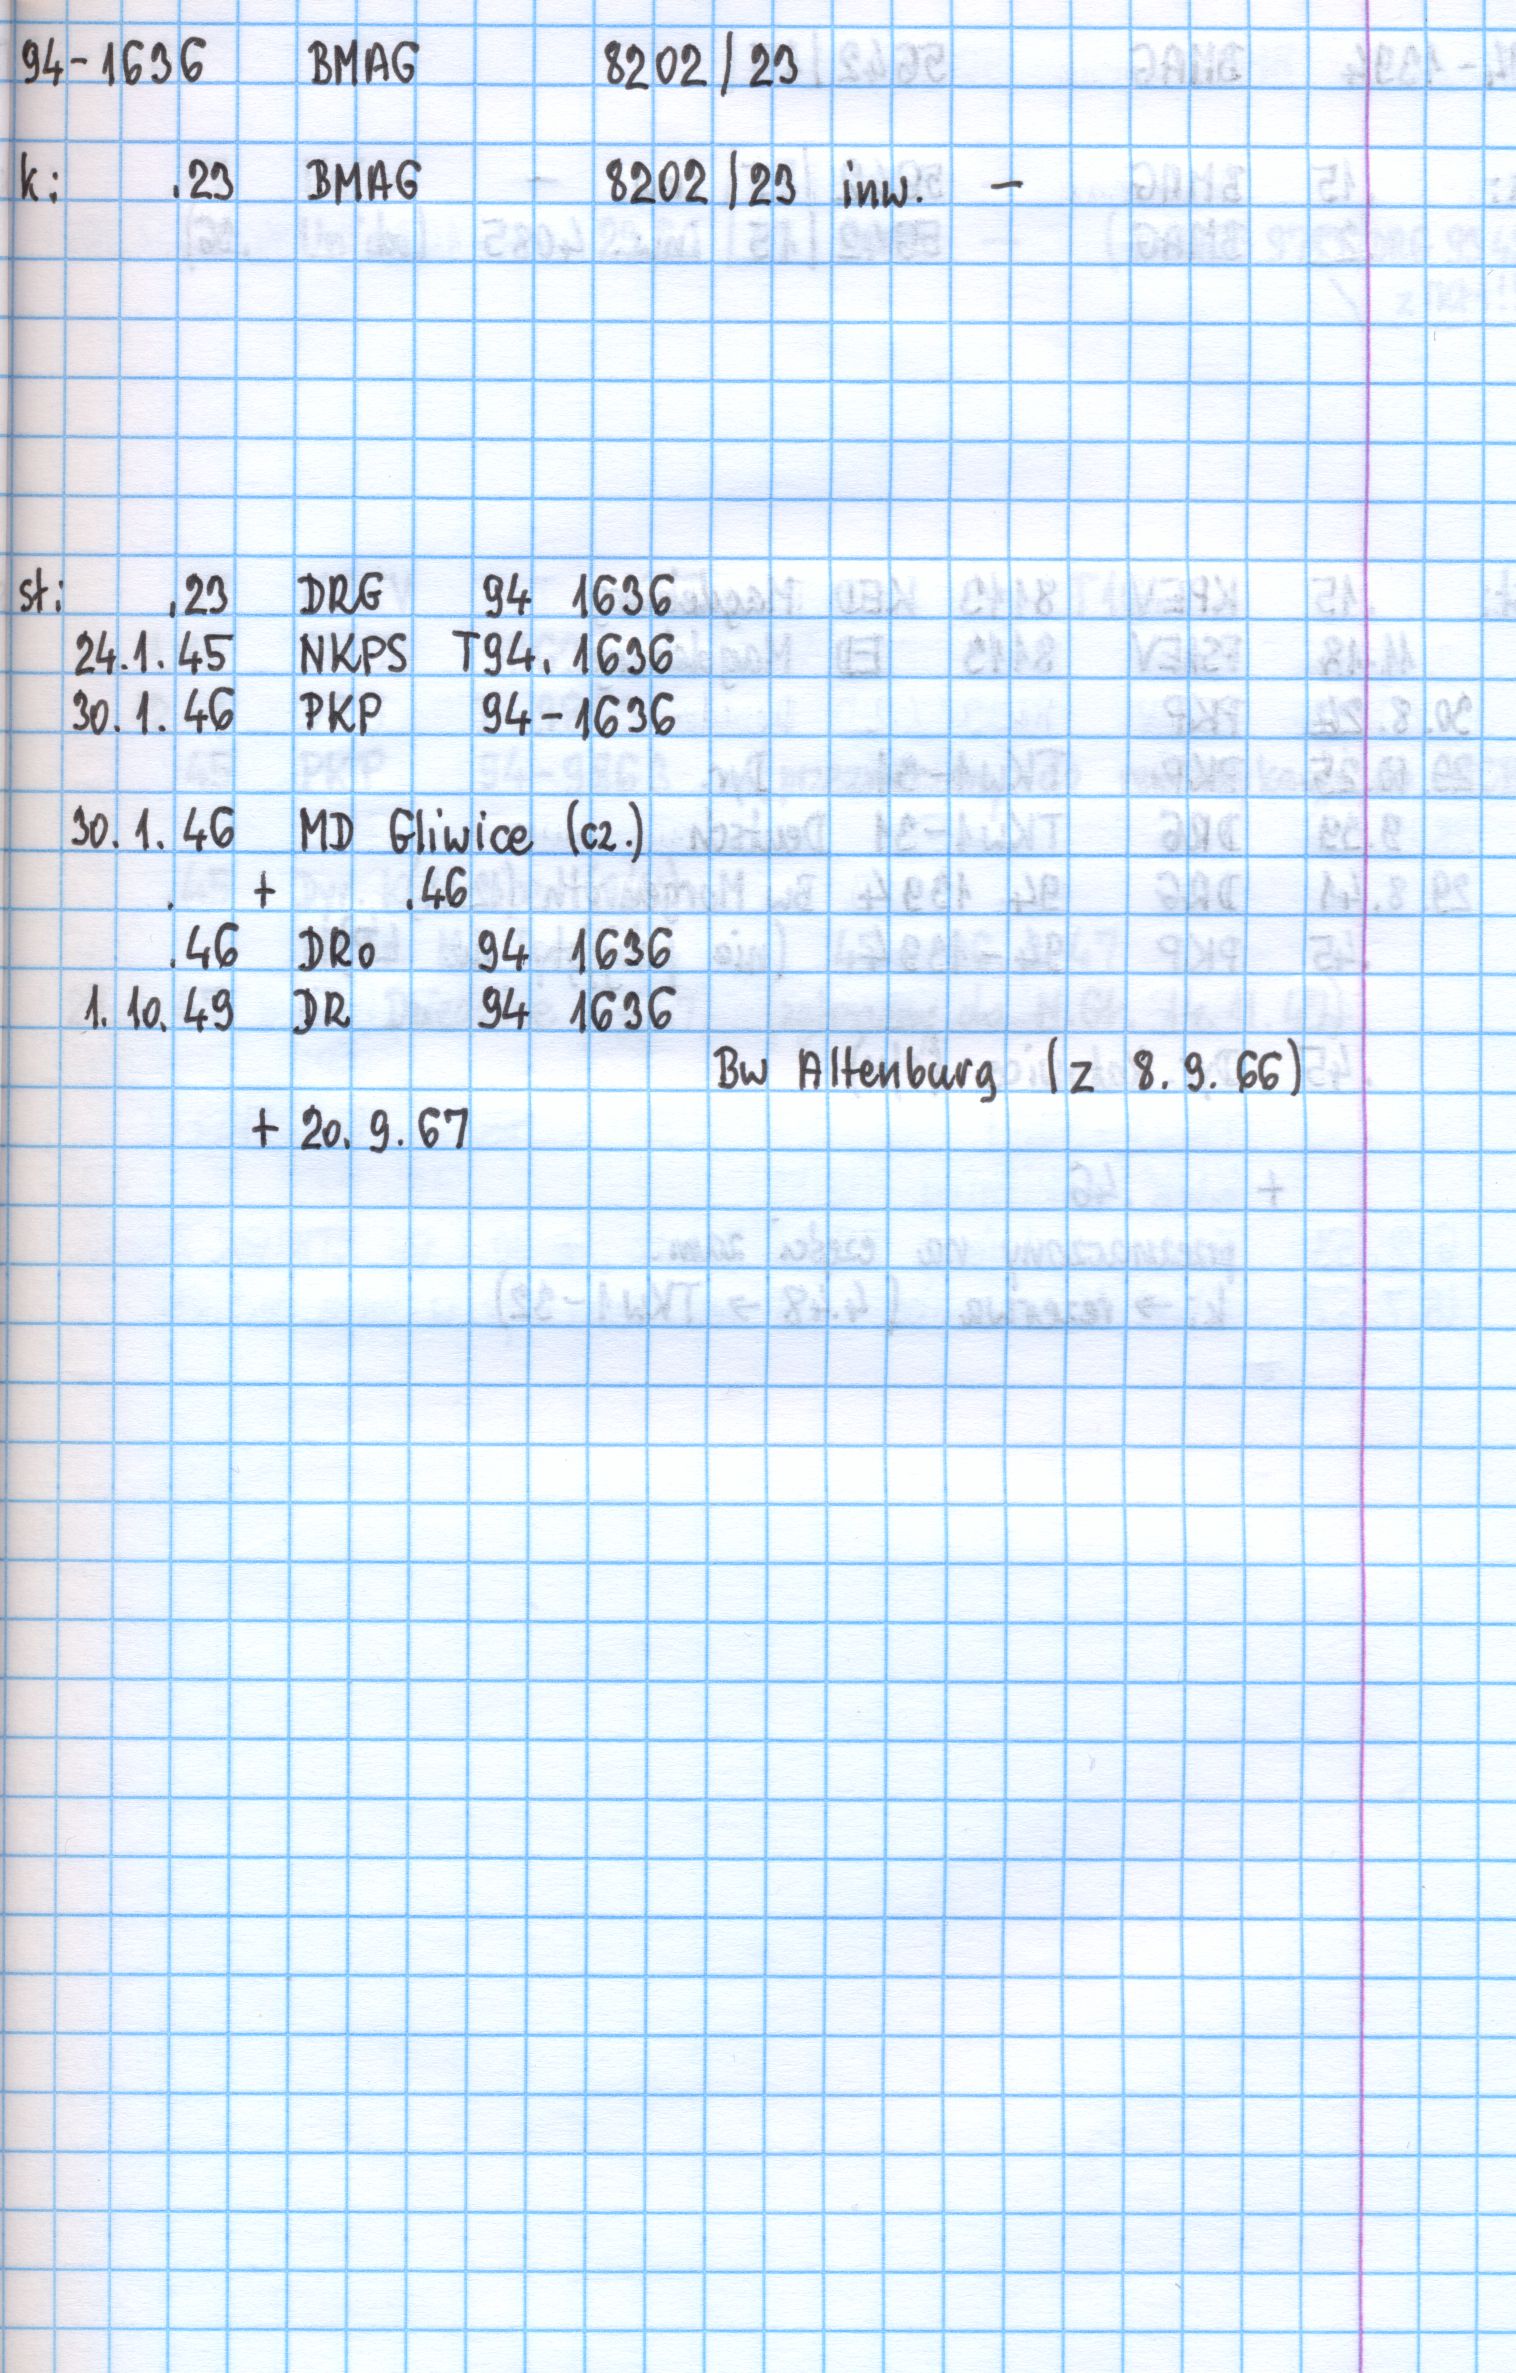 94-1636 BMAG 8202/23
k: .23 BMAG 8202/23 inw. -
st: .23 DRG 94 1636
24.1.45 NKPS T94.1636
30.1.46 PKP 94-1636
30.1.46 MD Gliwice (cz.)
. + .46
.46 DRo 94 1636
1.10.49 DR 94 1636
Bw Altenburg (z 8.9.66)
+ 20.9.67